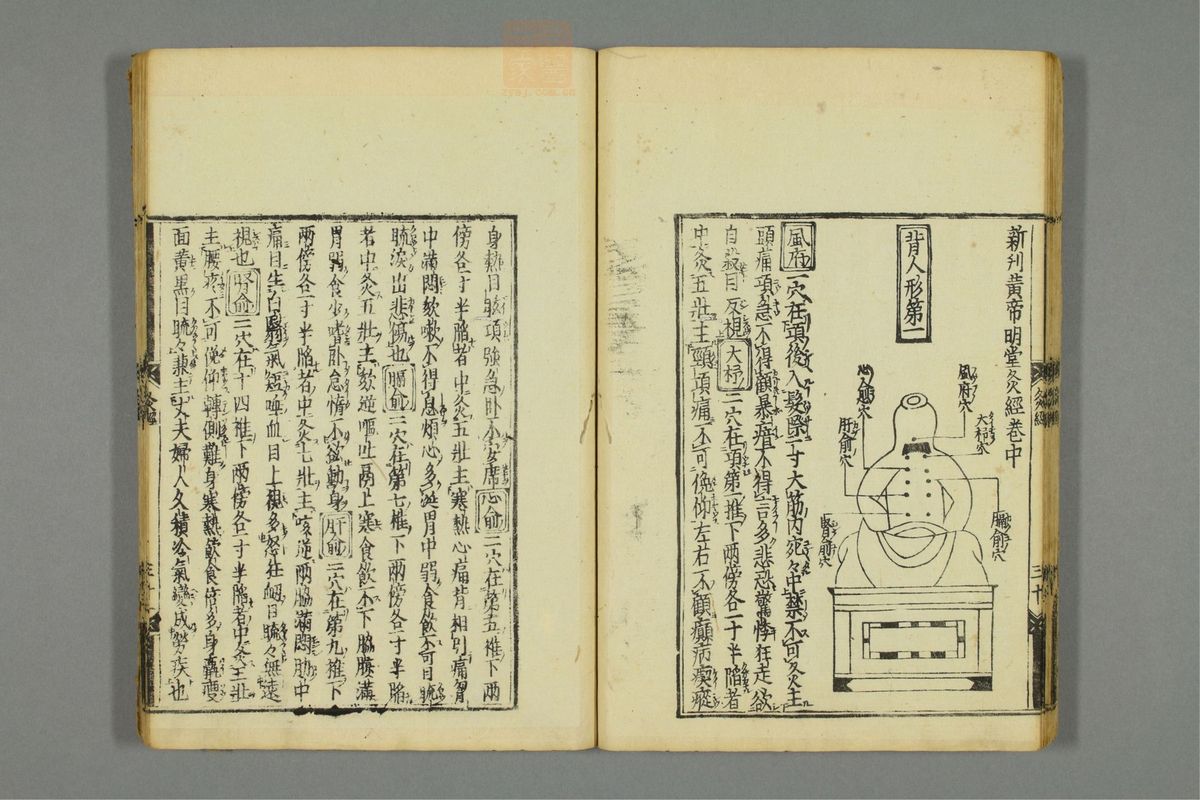 新刊黄帝明堂灸經卷中
背人形第一
風府穴
大杼穴
心俞穴
肝俞穴
膈俞穴
腎俞穴
風府一穴在項後入髮際一寸大筋内宛々中禁不可灸主
頭痛項急不得顧暴瘖不得言多悲恐驚悸狂走欲
自殺目反視大杼二穴在項第一椎下兩傍各一寸半陷者
中灸五壯主頸項痛不可俛仰左右不顧癲病瘈瘲
身熱目眩項強急卧不安席心俞二穴在第五椎下兩
傍各一寸半陷者中灸五壯主寒熱心痛背相引痛胷
中滿悶欬嗽不得息煩心多涎胃中弱食飲不下目䀮
䀮淚出悲傷也膈俞二穴在第七椎下兩傍各一寸半陷
者中灸五壯主欬逆嘔吐鬲上寒食飲不下脇腹滿
胃弱食少嗜卧怠惰不欲動身肝俞二穴在第九椎下
兩傍各一寸半陷者中灸七壯主咳逆兩脇滿悶肋中
痛目生白翳氣短唾血目上視多怒狂衂目䀮々無遠
視也腎俞二穴在十四椎下兩傍各一寸半陷者中灸五壯
主腰疼不可俛仰轉側難身寒熱飲食倍多身羸瘦
面黄黒目䀮々兼主丈夫婦人久積冷氣變成勞疾也
灸經
三十